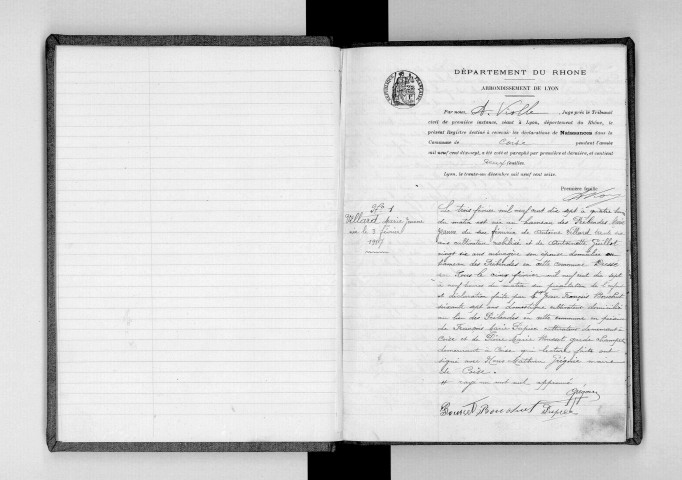 DÉPARTEMENT DU RHONE
ARRONDISSEMENT DE LYON
Par nous, A. Violle, Juge près le Tribunal
civil de première instance, séant à Lyon, département du Rhône, le
présent Registre destiné à recevoir les déclarations de Naissances dans la
Commune de Coise pendant l'année
mil neuf cent dix-sept, a été coté et paraphé par première et dernière, et contient
deux feuilles.
Lyon, le trente-un décembre mil neuf cent seize.
Première feuille
N° 1
Villard Marie Jeanne
née le 3 février
1917
Le trois février mil neuf cent dix sept à quatre heures
du matin est née au hameau des Prébendes Marie
Jeanne du sexe féminin de Antoine Villard
ans cultivateur mobilisé et de Antoinette Guillot
vingt six ans ménagère son épouse domiciliés au
hameau des Prébendes en cette commune. Dressé
par Nous le cinq février mil neuf cent dix sept
à neuf heures du matin sur présentation de l'enfant
et déclaration faite par Jean François
soixante sept ans domestique cultivateur domicilié
au lieu des Prébendes en cette commune en présence
de François Marie Dupré cultivateur demeurant à
Coise et de Pierre Marie garde champêtre
demeurant à Coise qui lecture faite ont
signé avec Nous Mathieu Grégoire maire
de Coise.
rayé un mot nul approuvé
Grégoire
Dupré